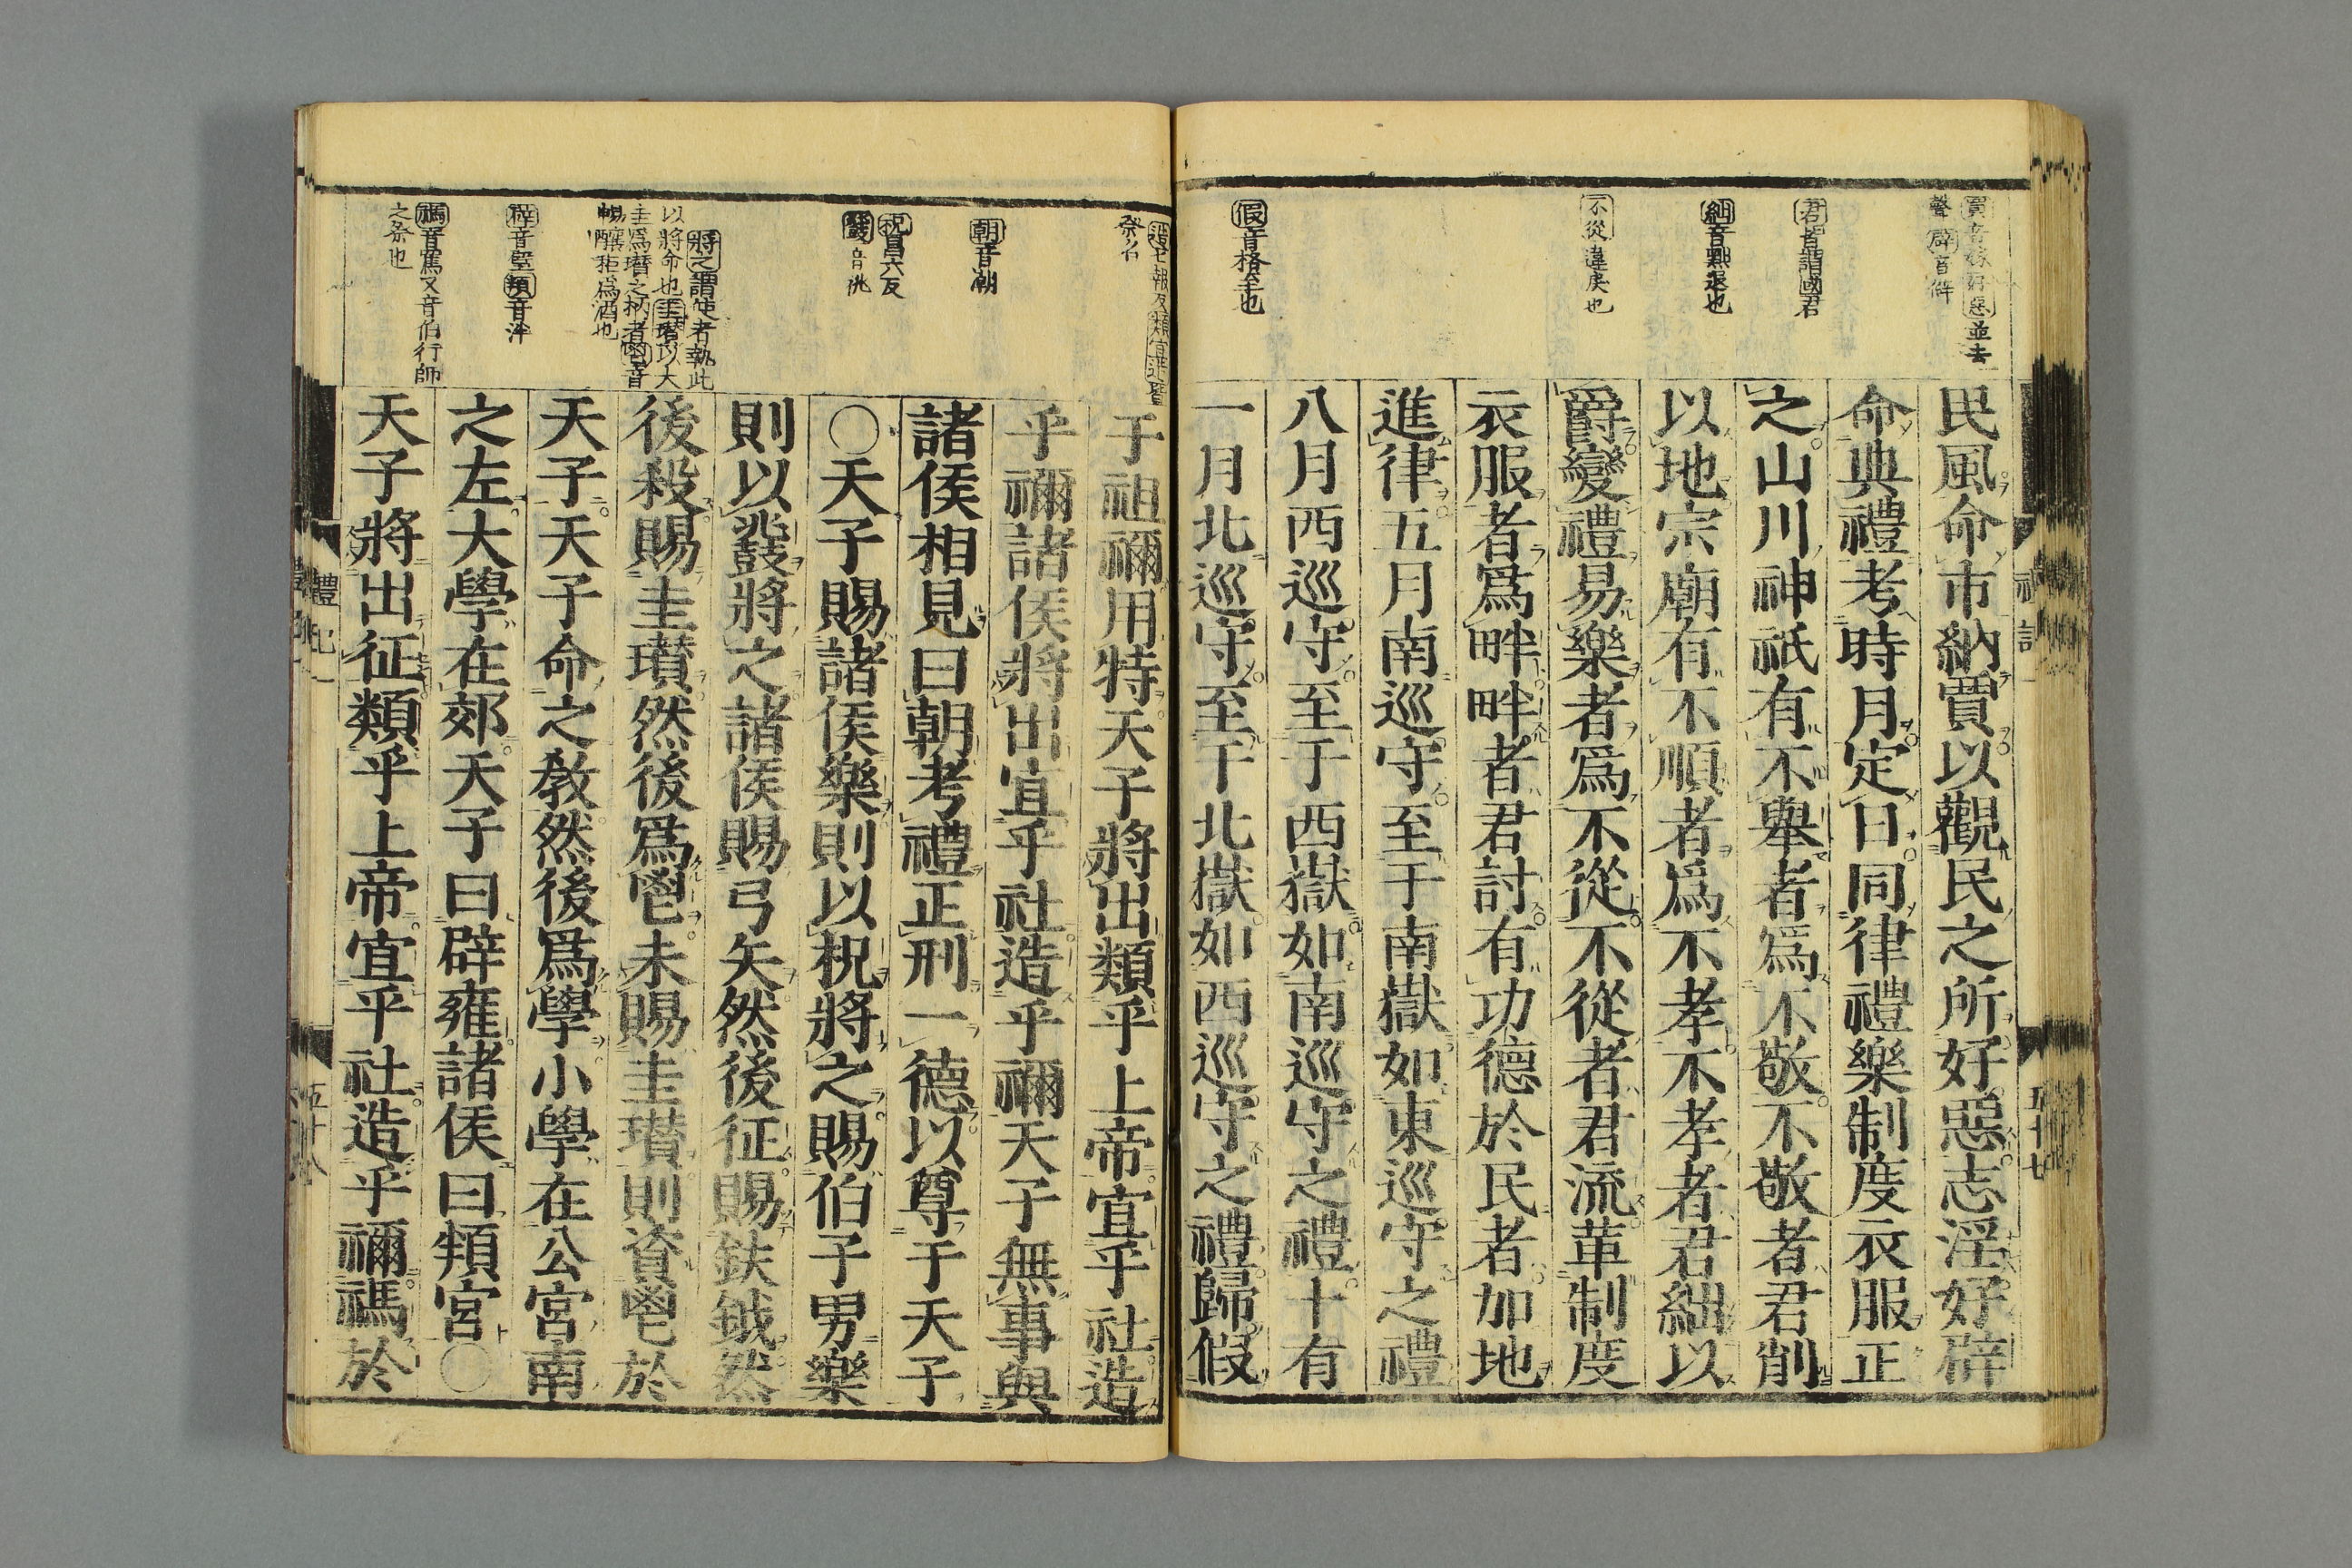 賈音嫁好惡並去
聲辟音僻
君者謂國君
絀音黜退也
不從違戾也
假音格至也
民風命市納賈以觀民之所好惡志淫好辟
命典禮考時月定日同律禮樂制度衣服正
之山川神祇有不舉者爲不敬不敬者君削
以地宗廟有不順者爲不孝不孝者君絀以
爵變禮易樂者爲不從不從者君流革制度
衣服者爲畔畔者君討有功德於民者加地
進律五月南巡守至于南嶽如東巡守之禮
八月西巡守至于西嶽如南巡守之禮十有
一月北巡守至于北嶽如西巡守之禮歸假
祭名
朝音潮
柷昌六反
鼗音洮
將之謂使者執此
以將命也圭瓚以大
圭爲瓚之柄者鬯音
暢釀秬爲酒也
辟音璧頖音泮
禡音罵又音伯行師
之祭也
于祖禰用特天子將出類乎上帝宜乎社造
乎禰諸侯將出宜乎社造乎禰天子無事與
諸侯相見曰朝考禮正刑一德以尊于天子
○天子賜諸侯樂則以柷將之賜伯子男樂
則以鼗將之諸侯賜弓矢然後征賜鈇鉞然
後殺賜圭瓚然後爲鬯未賜圭瓚則資鬯於
天子天子命之敎然後爲學小學在公宮南
之左大學在郊天子曰辟雍諸侯曰頖宮○
天子將出征類乎上帝宜乎社造乎禰禡於
禮記一
五十八